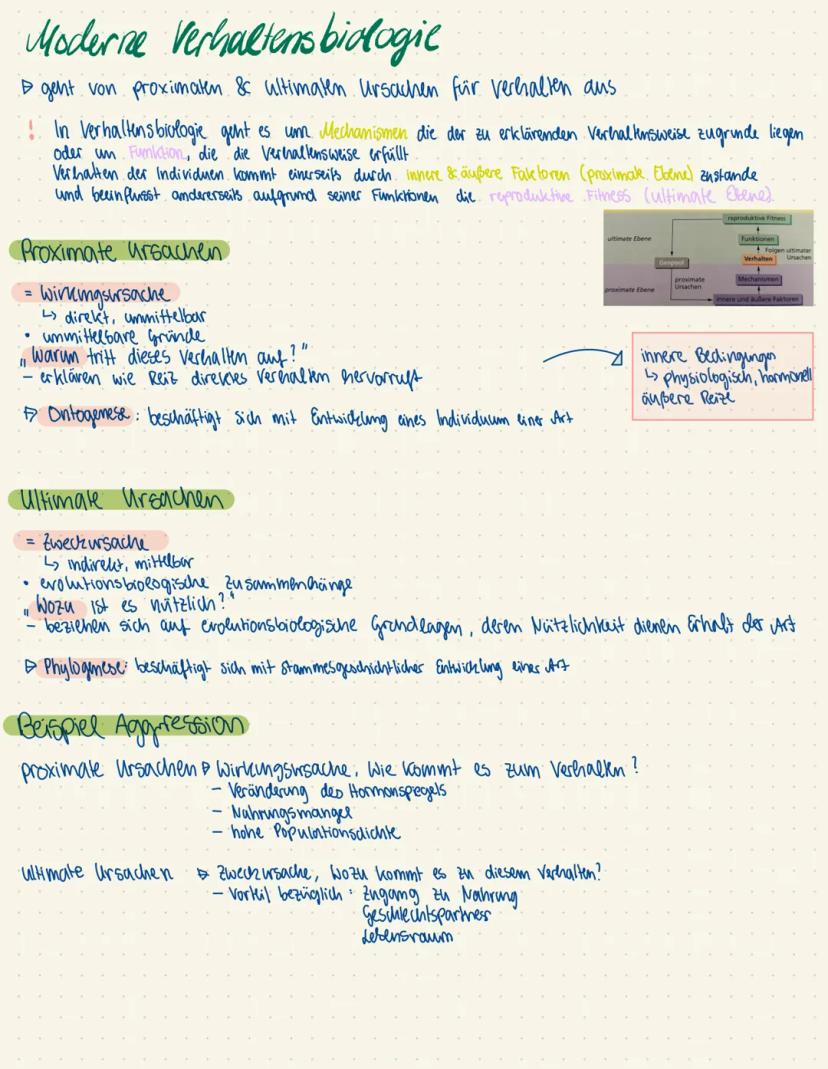 Moderne Verhaltensbiologie
▷ geht von proximaten & ultimaten Ursachen für Verhalten aus
! In Verhaltensbiologie geht es um Mechanismen die der zu erklärenden Verhaltensweise zugrunde liegen
oder um Funktion, die die Verhaltensweise erfüllt
Verhalten der Individuen kommt einerseits durch innere & äußere Faktoren (proximate Ebene) zustande
und beeinflusst andererseits aufgrund seiner Funktionen die reproduktive Fitness (ultimate Ebene).
reproduktive Fitness
ultimate Ebene
Funktionen
Folgen ultimater
Ursachen
Genpool
Verhalten
proximate
Ursachen
Mechanismen
proximate Ebene
innere und äußere Faktoren
Proximate Ursachen
= Wirkungsursache
↳ direkt, unmittelbar
• unmittelbare Gründe
„Warum tritt dieses Verhalten auf?"
– erklären wie Reiz direktes Verhalten hervorruft
innere Bedingungen
↳ physiologisch, hormonell
äußere Reize
▷ Ontogenese: beschäftigt sich mit Entwicklung eines Individuum einer Art
Ultimate Ursachen
= Zweckursache
↳ indirekt, mittelbar
• evolutionsbiologische Zusammenhänge
„Wozu ist es nützlich?"
– beziehen sich auf evolutionsbiologische Grundlagen, deren Nützlichkeit dienen Erhalt der Art
▷ Phylogenese: beschäftigt sich mit stammesgeschichtlicher Entwicklung einer Art
Beispiel Aggression
proximate Ursachen ▷ Wirkungsursache, Wie kommt es zum Verhalten?
– Veränderung des Hormonspiegels
– Nahrungsmangel
– hohe Populationsdichte
ultimate Ursachen ▷ Zweckursache, Wozu kommt es zu diesem Verhalten?
– Vorteil bezüglich: Zugang zu Nahrung
Geschlechtspartner
Lebensraum